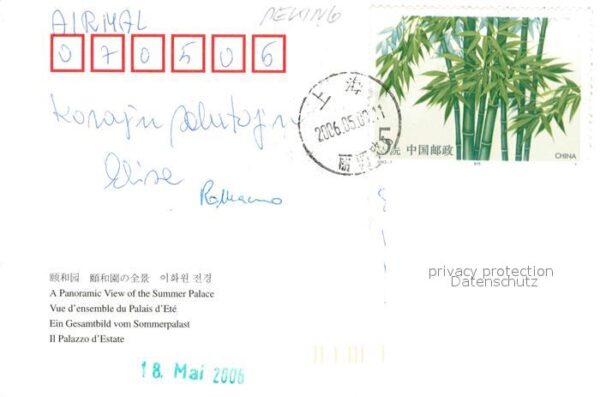 AIRMAIL
PEKING
070506
上海
2006.05.09.11
5元 中国邮政
CHINA
Elise
颐和园 頤和園の全景 이화원 전경
A Panoramic View of the Summer Palace
Vue d'ensemble du Palais d'Eté
Ein Gesamtbild vom Sommerpalast
Il Palazzo d'Estate
privacy protection
Datenschutz
18. Mai 2006